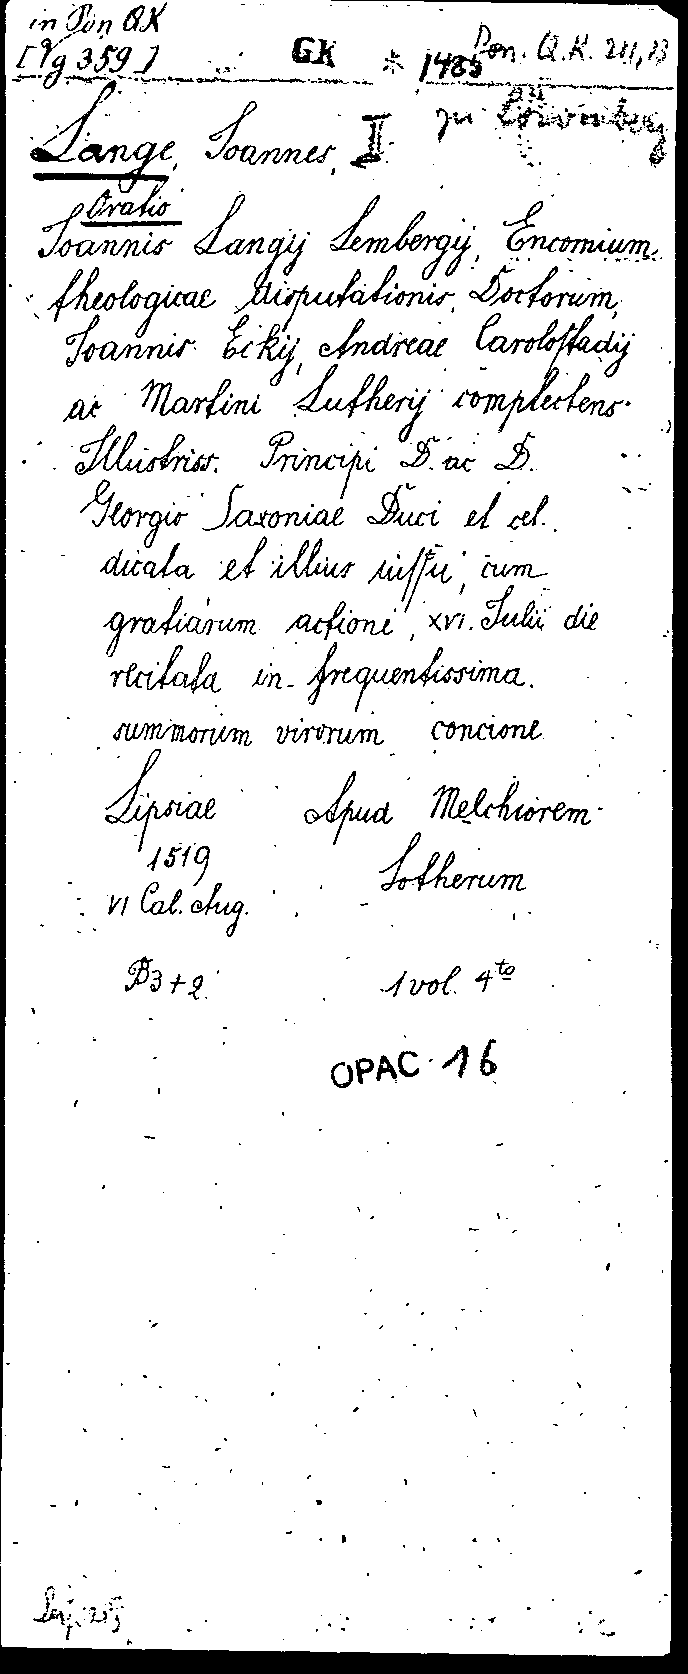 in Pon QK
[Vg 359]
GK * 1485
Pon. Q.K. 211,13
zu Löwenberg
Lange, Joannes, II
Oratio
Joannis Langij Lembergij, Encomium
theologicae disputationis, Doctorum,
Joannis Eckij, Andreae Carolostadij
ac Martini Lutherij complectens.
Illustriss. Principi D. ac D.
Georgio Saxoniae Duci et cet.
dicata et illius iussu, cum
gratiarum actione, xvi. Julii die
recitata in frequentissima.
summorum virorum concione
Lipsiae Apud Melchiorem
1519 Lotherum
VI Cal. Aug.
B3+2 1 vol. 4to
OPAC 16